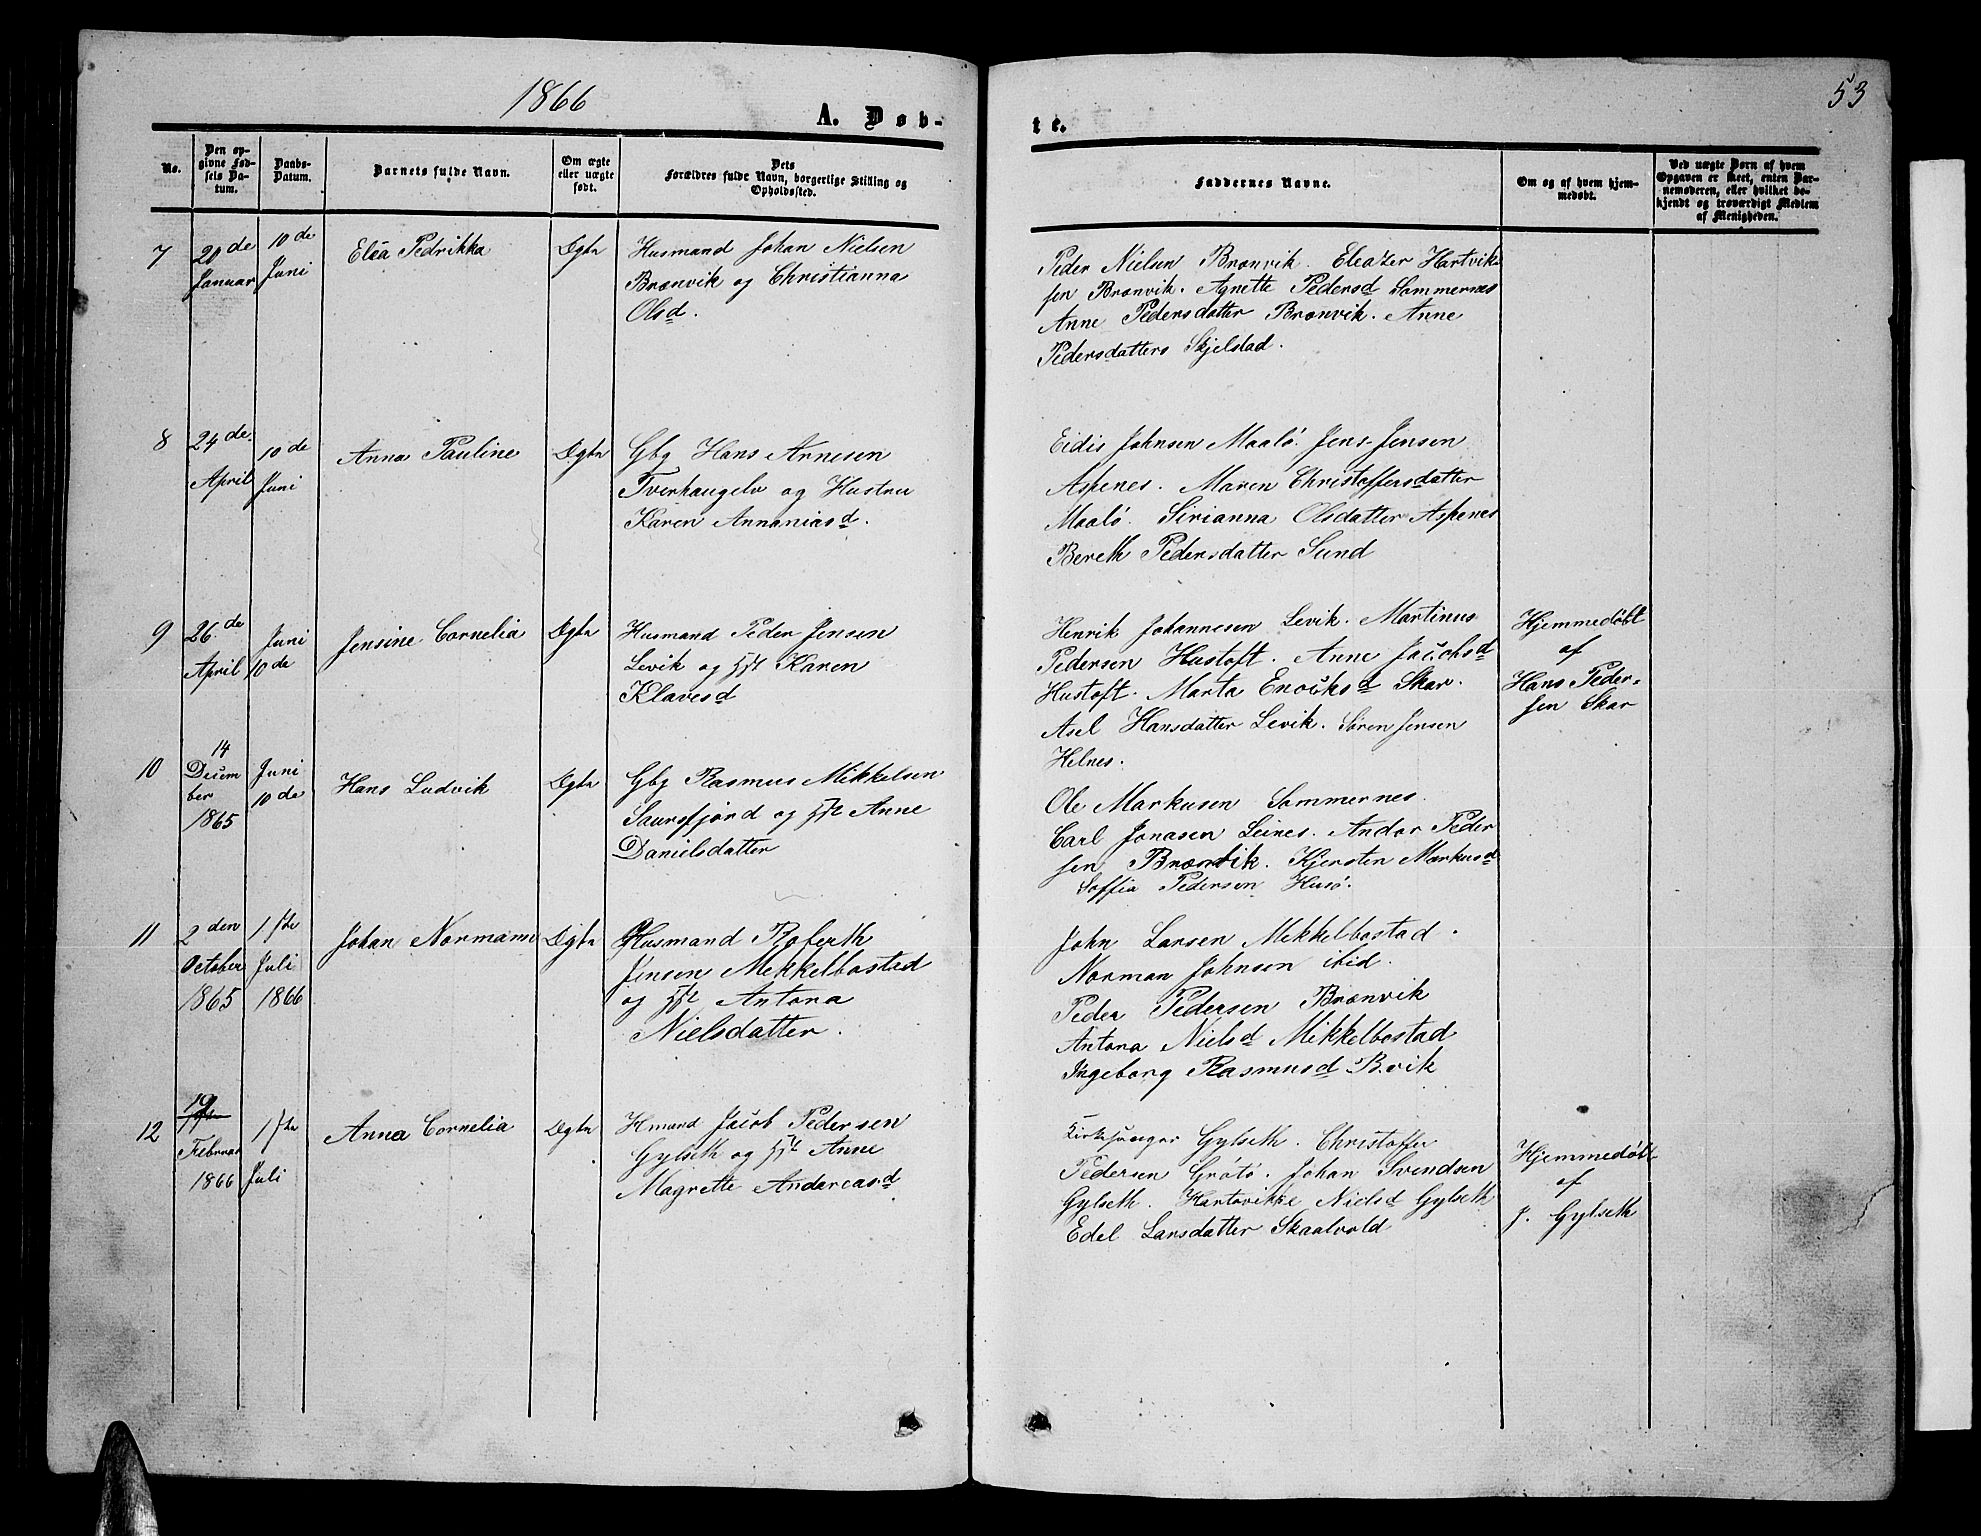 1866
53
A. Døb-
te.
No.
Den op-
givne Fød-
sels Da-
tum.
Daabs-
Datum.
Barnets fulde Navn.
Om ægte
eller uægte
født.
Dets
Forældres fulde Navn, borgerlige Stilling og
Opholdssted.
Faddernes Navne.
Om og af hvem hjem-
medøbt.
Ved uægte Børn af hvem
Opgaven er skeet, enten Bar-
nemoderen, eller hvilket be-
kjendt og troværdigt Medlem
af Menigheden.
7
20de
Januar
10de
Juni
Elea Pedrikka
Ægte
Husmand Johan Nielsen
Brænvik og Christianna
Olsd.
Peder Nielsen Brænvik. Eleazer Hartvik
sen Brænvik. Agnette Pedersd Sommernes
Anne Pedersdatter Brænvik. Anne
Pedersdatters Skjelstad.
8
24de
April
10de
Juni
Anna Pauline
Ægte
Gbg Hans Arnesen
Tverhaugelv og Hustru
Karen Annaniasd.
Eidis Johnsen Maalö. Jens Jensen
Aspenes. Maren Christoffersdatter
Maalö. Sirianna Olsdatter Aspenes
Bereth Pedersdatter Sund
9
26de
April
Juni
10de
Jensine Cornelia
Ægte
Husmand Peder Jensen
Levik og Hst Karen
Klavesd
Henrik Johannesen Levik. Martinus
Pedersen Hustoft. Anne Jacobsd
Hustoft. Marta Enocksd Skar.
Asel Hansdatter Levik. Sören Jensen
Helnes.
Hjemmedöbt
af
Hans Peder=
sen Skar
10
14
Decem
ber
1865
Juni
10de
Hans Ludvik
Ægte
Gbg Rasmus Mikkelsen
Saursfjord og Hst Anne
Danielsdatter
Ole Markusen Sommernes.
Carl Jonasen Leines. Andor Peder
sen Brænvik. Kjersten Markusd
Soffia Pedersen Husö.
11
2den
October
1865
1ste
Juli
1866
Johan Normann
Ægte
Husmand Roberth
Jensen Mekkelbostad
og Hst Antona
Nielsdatter.
John Larsen Mekkelbostad.
Norman Johnsen ibid.
Peder Pedersen Brænvik
Antona Nielsd Mikkelbostad
Ingeborg Rasmusd B.vik
12
19
Februar
1866
1ste
Juli
Anna Cornelia
Ægte
Hmand Jacob Pedersen
Gylseth og Hst Anne
Magrette Andereasd
Kirkesanger Gylseth. Christoffer
Pedersen Grötö. Johan Svendsen
Gylseth. Hartvikke Nielsd Gylseth
Edel Larsdatter Skaalvold
Hjemmedöbt
af
J. Gylseth